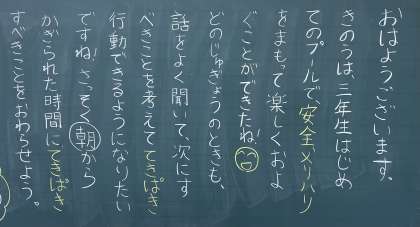 おはようございます。
きのうは、三年生はじめ
てのプールで安全、メリハリ
をまもって楽しくおよ
ぐことができたね!
どのじゅぎょうのときも、
話をよく聞いて、次にす
べきことを考えててきぱき
行動できるようになりたい
ですね!さっそく朝から
かぎられた時間にてきぱき
すべきことをおわらせよう。